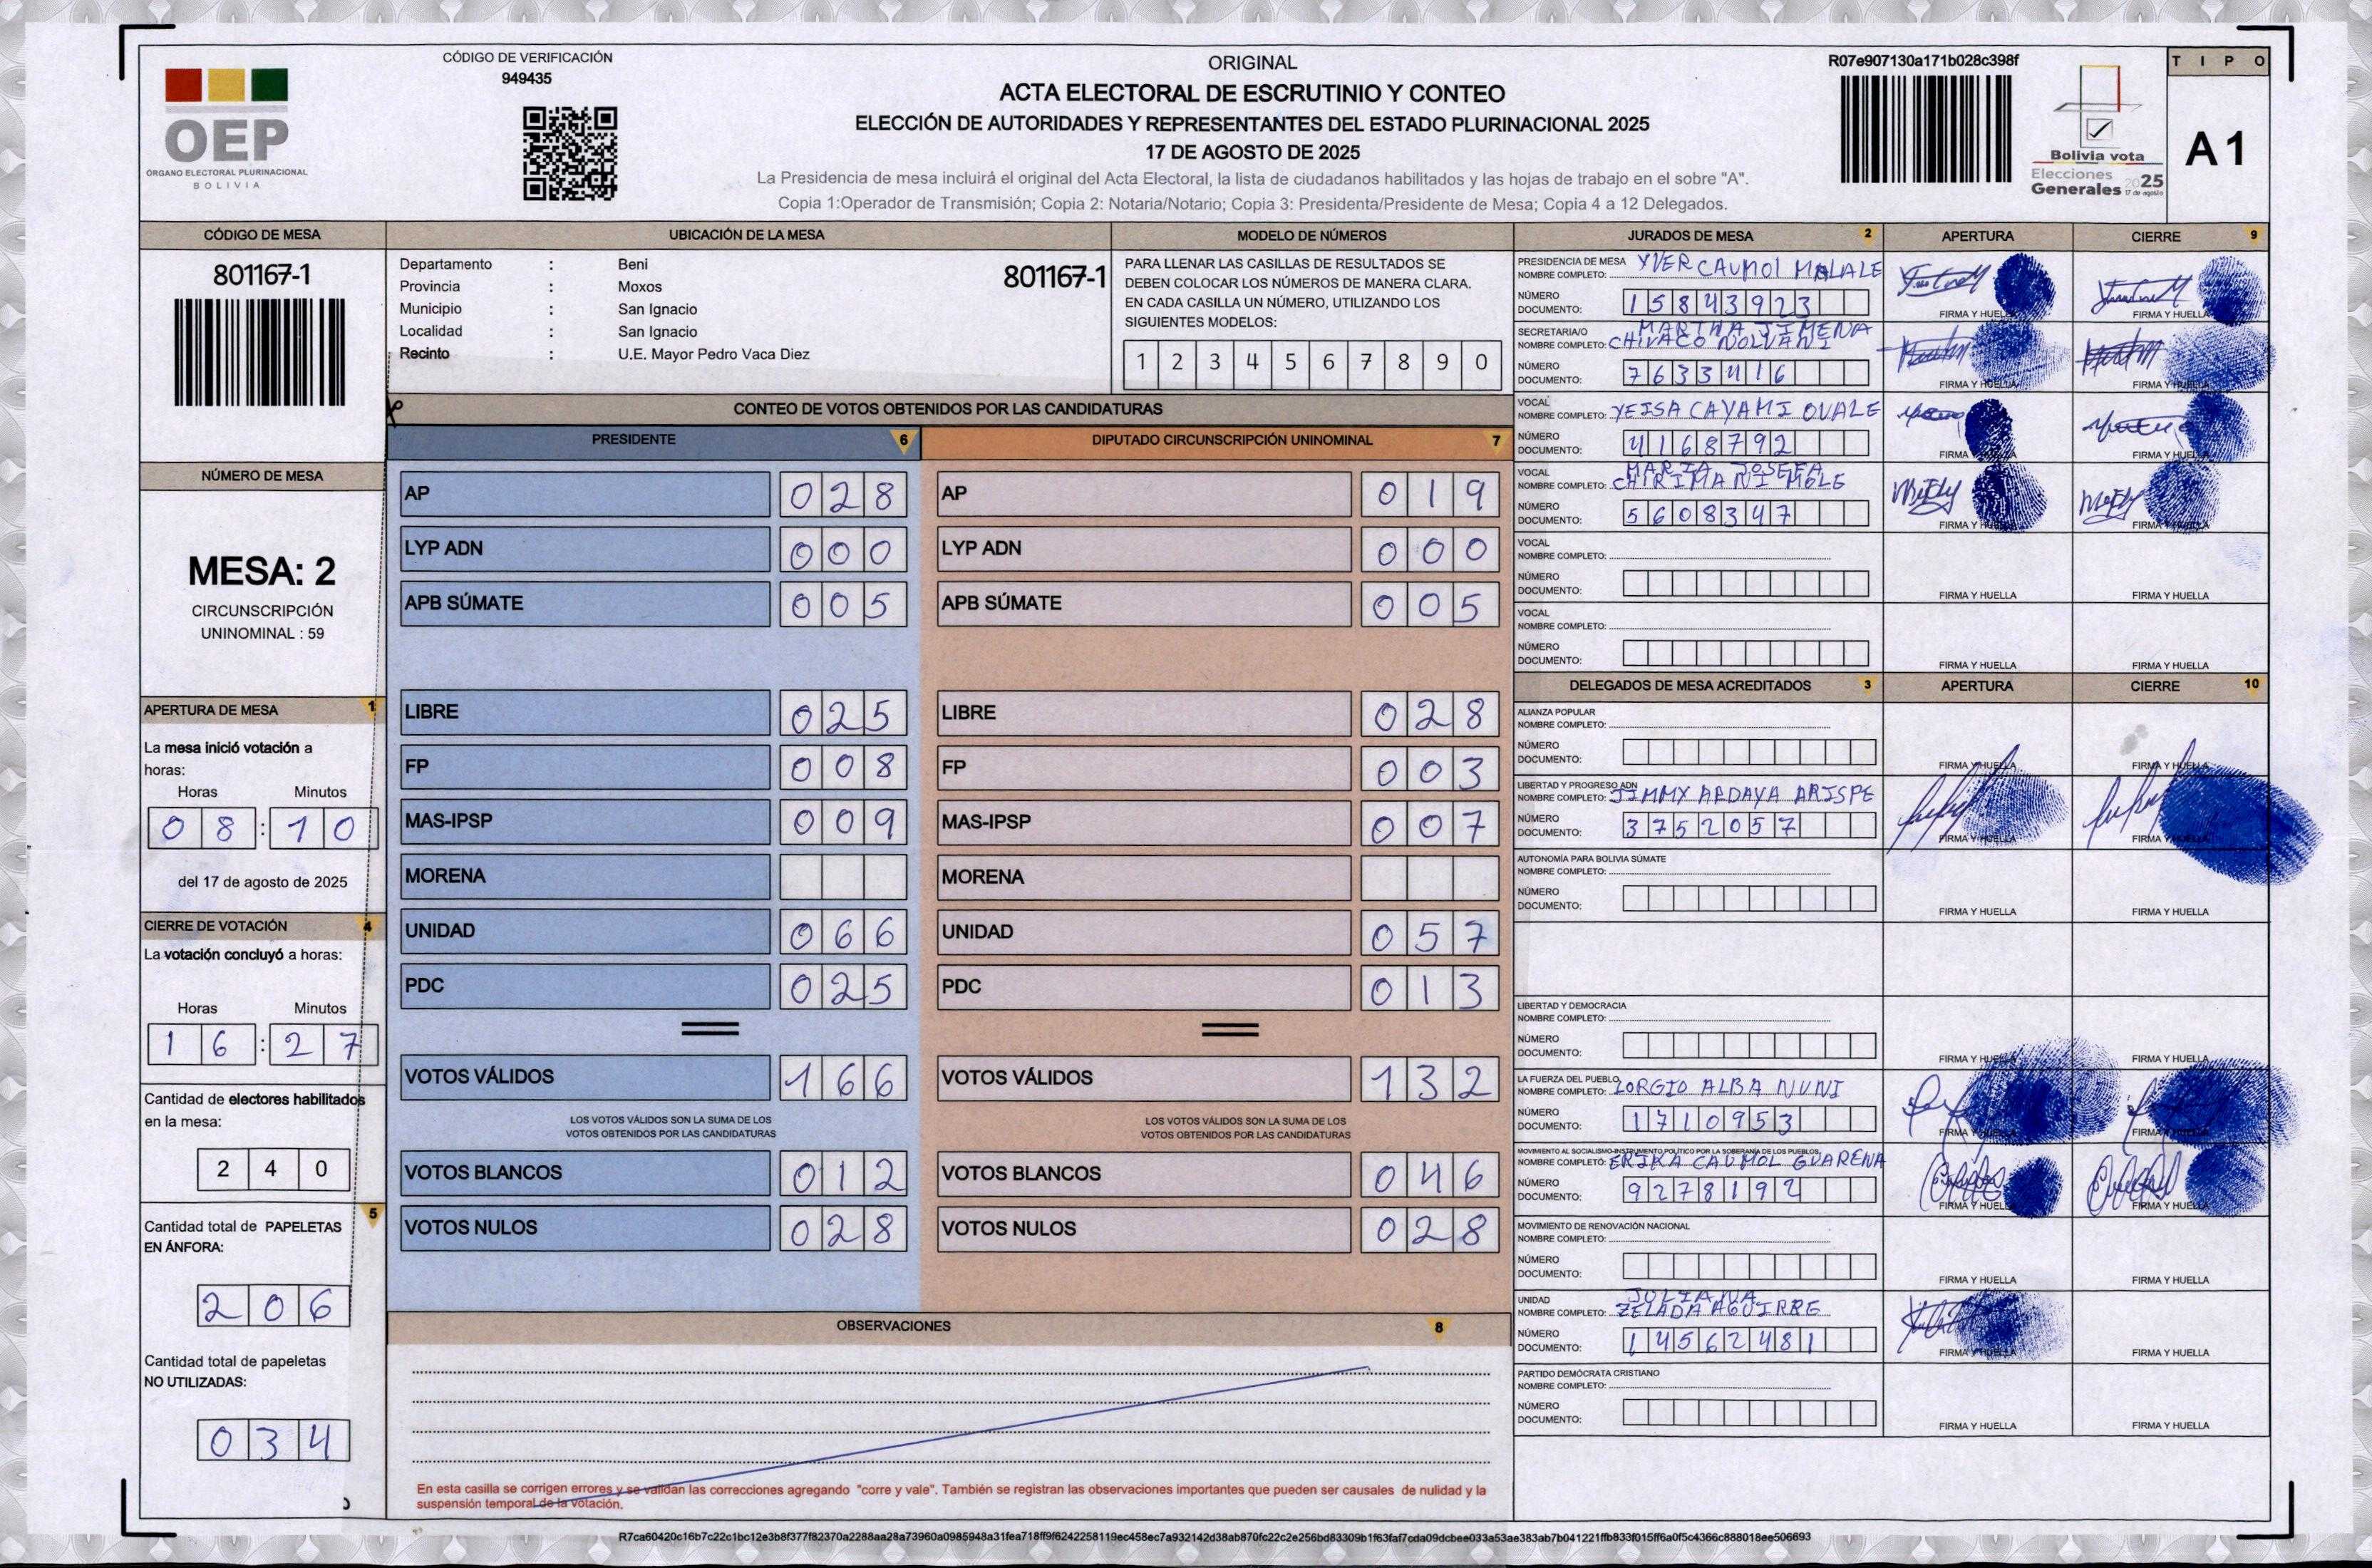 CÓDIGO DE VERIFICACIÓN
949435
OEP
ÓRGANO ELECTORAL PLURINACIONAL
BOLIVIA
ORIGINAL
ACTA ELECTORAL DE ESCRUTINIO Y CONTEO
ELECCIÓN DE AUTORIDADES Y REPRESENTANTES DEL ESTADO PLURINACIONAL 2025
17 DE AGOSTO DE 2025
La Presidencia de mesa incluirá el original del Acta Electoral, la lista de ciudadanos habilitados y las hojas de trabajo en el sobre "A".
Copia 1:Operador de Transmisión; Copia 2: Notaria/Notario; Copia 3: Presidenta/Presidente de Mesa; Copia 4 a 12 Delegados.
R07e907130a171b028c398f
Bolivia vota
Elecciones
Generales 2025
17 de agosto
TIPO
A 1
CÓDIGO DE MESA
801167-1
UBICACIÓN DE LA MESA
Departamento : Beni
Provincia : Moxos
Municipio : San Ignacio
Localidad : San Ignacio
Recinto : U.E. Mayor Pedro Vaca Diez
801167-1
MODELO DE NÚMEROS
PARA LLENAR LAS CASILLAS DE RESULTADOS SE
DEBEN COLOCAR LOS NÚMEROS DE MANERA CLARA.
EN CADA CASILLA UN NÚMERO, UTILIZANDO LOS
SIGUIENTES MODELOS:
1 2 3 4 5 6 7 8 9 0
NÚMERO DE MESA
MESA: 2
CIRCUNSCRIPCIÓN
UNINOMINAL : 59
APERTURA DE MESA 1
La mesa inició votación a
horas:
Horas Minutos
08:10
del 17 de agosto de 2025
CIERRE DE VOTACIÓN 4
La votación concluyó a horas:
Horas Minutos
16:27
Cantidad de electores habilitados
en la mesa:
240
5
Cantidad total de PAPELETAS
EN ÁNFORA:
206
Cantidad total de papeletas
NO UTILIZADAS:
034
CONTEO DE VOTOS OBTENIDOS POR LAS CANDIDATURAS
PRESIDENTE 6
AP 028
LYP ADN 000
APB SÚMATE 005
LIBRE 025
FP 008
MAS-IPSP 009
MORENA
UNIDAD 066
PDC 025
VOTOS VÁLIDOS 166
LOS VOTOS VÁLIDOS SON LA SUMA DE LOS
VOTOS OBTENIDOS POR LAS CANDIDATURAS
VOTOS BLANCOS 012
VOTOS NULOS 028
DIPUTADO CIRCUNSCRIPCIÓN UNINOMINAL 7
AP 019
LYP ADN 000
APB SÚMATE 005
LIBRE 028
FP 003
MAS-IPSP 007
MORENA
UNIDAD 057
PDC 013
VOTOS VÁLIDOS 132
LOS VOTOS VÁLIDOS SON LA SUMA DE LOS
VOTOS OBTENIDOS POR LAS CANDIDATURAS
VOTOS BLANCOS 046
VOTOS NULOS 028
OBSERVACIONES 8
En esta casilla se corrigen errores y se validan las correcciones agregando "corre y vale". También se registran las observaciones importantes que pueden ser causales de nulidad y la
suspensión temporal de la votación.
JURADOS DE MESA 2 APERTURA CIERRE 9
PRESIDENCIA DE MESA
NOMBRE COMPLETO: YVER CAUMOL MALALE
NÚMERO
DOCUMENTO: 15843923
FIRMA Y HUELLA FIRMA Y HUELLA
SECRETARIA/O MARINA JIMENA
NOMBRE COMPLETO: CHIVACO NOLVANI
NÚMERO
DOCUMENTO: 7633416
FIRMA Y HUELLA FIRMA Y HUELLA
VOCAL
NOMBRE COMPLETO: YEISA CAYAMI OVALE
NÚMERO
DOCUMENTO: 4168792
FIRMA FIRMA Y HUELLA
VOCAL MARIA JOSEFA
NOMBRE COMPLETO: CHIRIMANI MOLE
NÚMERO
DOCUMENTO: 5608347
FIRMA Y HUELLA FIRMA Y HUELLA
VOCAL
NOMBRE COMPLETO:
NÚMERO
DOCUMENTO:
FIRMA Y HUELLA FIRMA Y HUELLA
VOCAL
NOMBRE COMPLETO:
NÚMERO
DOCUMENTO:
FIRMA Y HUELLA FIRMA Y HUELLA
DELEGADOS DE MESA ACREDITADOS 3 APERTURA CIERRE 10
ALIANZA POPULAR
NOMBRE COMPLETO:
NÚMERO
DOCUMENTO:
FIRMA Y HUELLA FIRMA Y HUELLA
LIBERTAD Y PROGRESO ADN
NOMBRE COMPLETO: JIMMY ARDAYA ARISPE
NÚMERO
DOCUMENTO: 3752057
FIRMA Y HUELLA FIRMA Y HUELLA
AUTONOMÍA PARA BOLIVIA SÚMATE
NOMBRE COMPLETO:
NÚMERO
DOCUMENTO:
FIRMA Y HUELLA FIRMA Y HUELLA
LIBERTAD Y DEMOCRACIA
NOMBRE COMPLETO:
NÚMERO
DOCUMENTO:
FIRMA Y HUELLA FIRMA Y HUELLA
LA FUERZA DEL PUEBLO
NOMBRE COMPLETO: LORGIO ALBA NUNI
NÚMERO
DOCUMENTO: 1710953
FIRMA Y HUELLA FIRMA Y HUELLA
MOVIMIENTO AL SOCIALISMO-INSTRUMENTO POLÍTICO POR LA SOBERANÍA DE LOS PUEBLOS
NOMBRE COMPLETO: ERIKA CAUMOL GUARENA
NÚMERO
DOCUMENTO: 9278192
FIRMA Y HUELLA FIRMA Y HUELLA
MOVIMIENTO DE RENOVACIÓN NACIONAL
NOMBRE COMPLETO:
NÚMERO
DOCUMENTO:
FIRMA Y HUELLA FIRMA Y HUELLA
UNIDAD JULIANA
NOMBRE COMPLETO: ZELADA AGUIRRE
NÚMERO
DOCUMENTO: 14562481
FIRMA Y HUELLA FIRMA Y HUELLA
PARTIDO DEMÓCRATA CRISTIANO
NOMBRE COMPLETO:
NÚMERO
DOCUMENTO:
FIRMA Y HUELLA FIRMA Y HUELLA